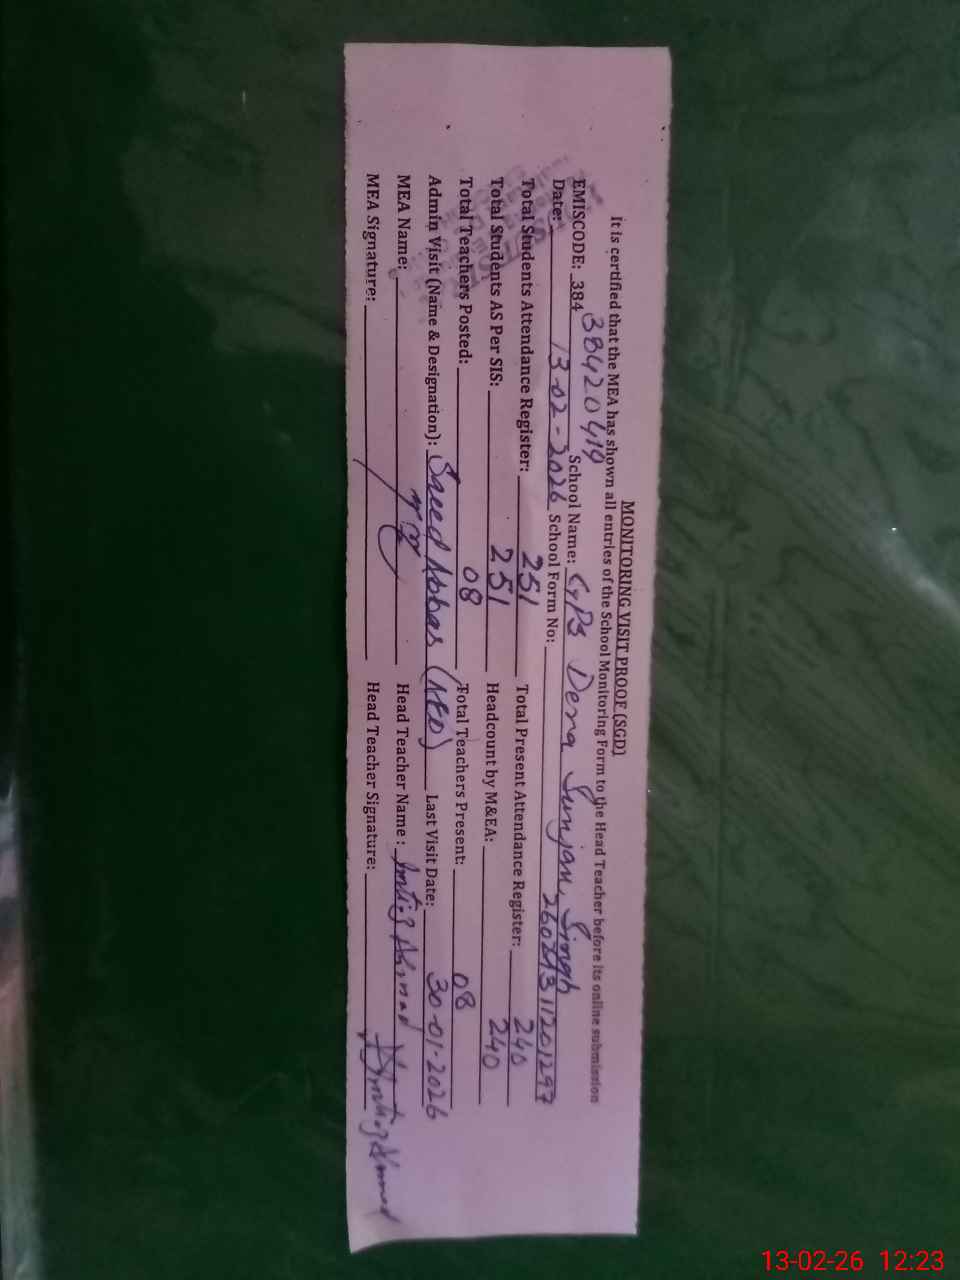 MONITORING VISIT PROOF (SGD)
It is certified that the MEA has shown all entries of the School Monitoring Form to the Head Teacher before its online submission
EMISCODE: 384 38420419 School Name: GPS Dera Surjan Singh
Date: 13-02-2026 School Form No:
Total Students Attendance Register: 251 Total Present Attendance Register: 240
Total Students AS Per SIS: 251 Headcount by M&EA: 240
Total Teachers Posted: 08 Total Teachers Present: 08
Admin Visit (Name & Designation): Saeed Abbas (AEO) Last Visit Date: 30-01-2026
MEA Name: Head Teacher Name : Imtiaz Ahmad
MEA Signature: Head Teacher Signature: Imtiaz Ahmad
13-02-26 12:23